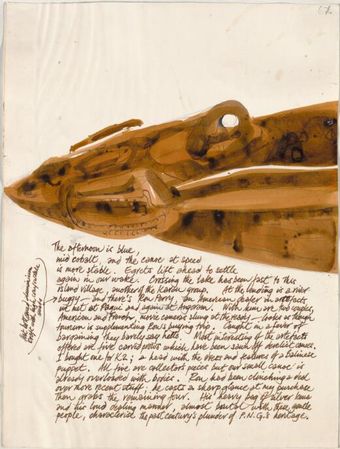 67.
The afternoon is blue,
mid cobalt, and the canoe at speed
is more stable. Egrets lift ahead to settle
again in our wake. Crossing the lake has been fast to this
island village, another of the Karin group. At the landing is a river
buggy – and there's Ron Perry, an American dealer in artifacts
we met at Pagui and again at Angoram. With him are two couples,
American and French, movie cameras slung at the ready – looks as though
tourism is supplementing Ron's buying trip. Caught in a fever of
bargaining they barely say hello. Most interesting of the artefacts
offered are five carved posts which have been sawn off
I bought one for K2; a head with the dress and features of a Balinese
puppet. All five are collectors pieces but our small canoe is
already overloaded with bodies. Ron has been clinching a deal
over more recent stuff. he casts a sharp glance at my purchase
then grabs the remaining four. His heavy bag of silver kina
and his loud dealing manner, almost brutal with these gentle
people, characterise the past century's plunder of P.N.G's heritage.